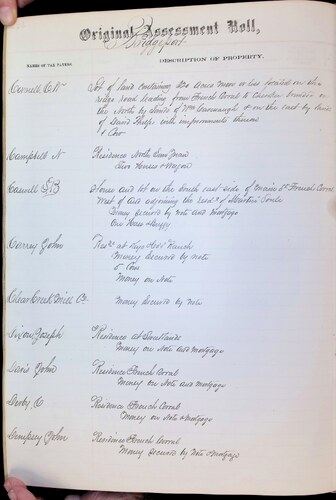 Original Assessment Roll,
Bridgeport
NAMES OF TAX PAYERS. DESCRIPTION OF PROPERTY.
Lot of land containing 120 Acres more or less located on the
road leading from French Corral to
the North by lands of Wm Cavanaugh & on the east by land
of David Phelps with improvements thereon
1 Cow
Campbell N Residence North San Juan
Two Horses & Wagon
House and lot on the South east side of Main St French Corral
West of and adjoining the resd of
Money secured by note and Mortgage
One Horse & Buggy
John
Money secured by note
5 Cows
Money on Note
Clear Creek Mill Co. Money Secured by Note
Joseph Residence at
Money on Note and Mortgage
Davis John Residence French Corral
Money on Note and Mortgage
Derby O Residence French Corral
Money on Note & Mortgage
Dempsey John Residence French Corral
Money secured by Note & Mortgage